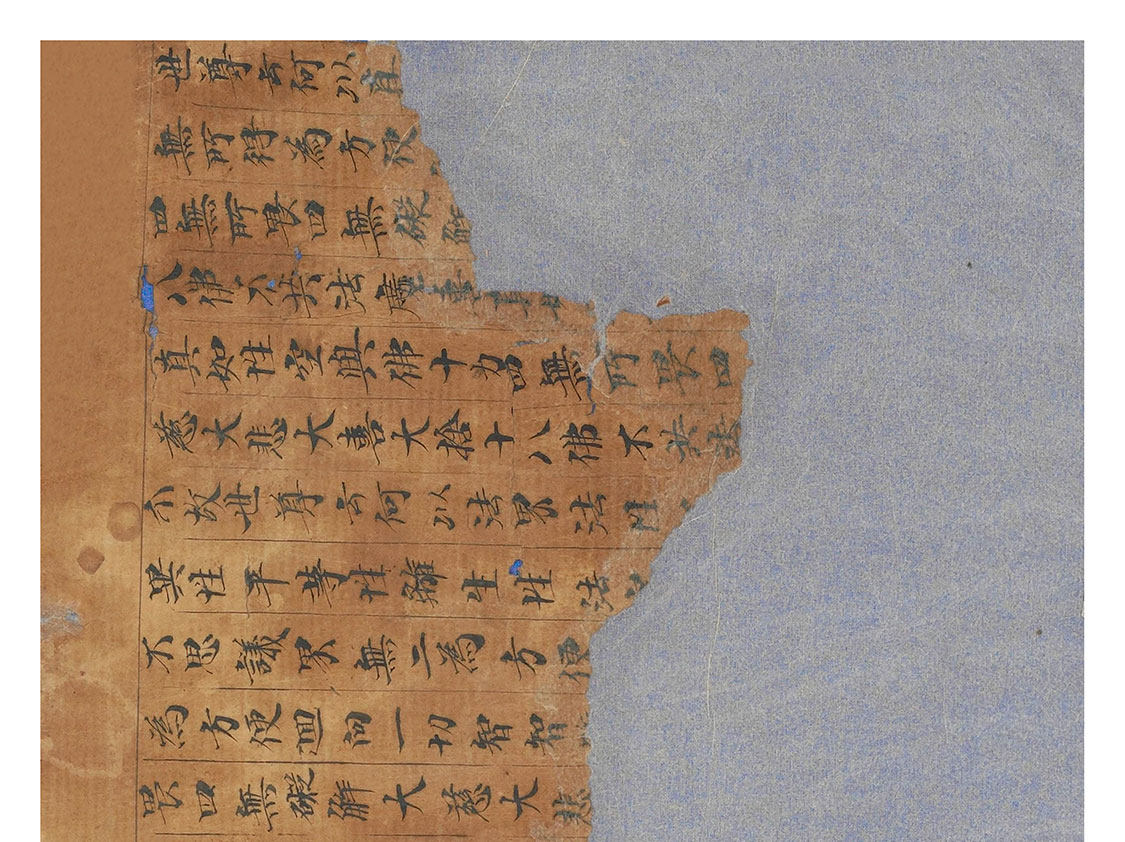 世尊云何以真
無所得為方便
四無所畏四無礙解
八佛不共法慶喜真如
真如性空與佛十力四無所畏四
慈大悲大喜大捨十八佛不共法
分故世尊云何以法界法性
異性平等性離生性法
不思議界無二為方便
為方便迴向一切智智
畏四無礙解大慈大悲